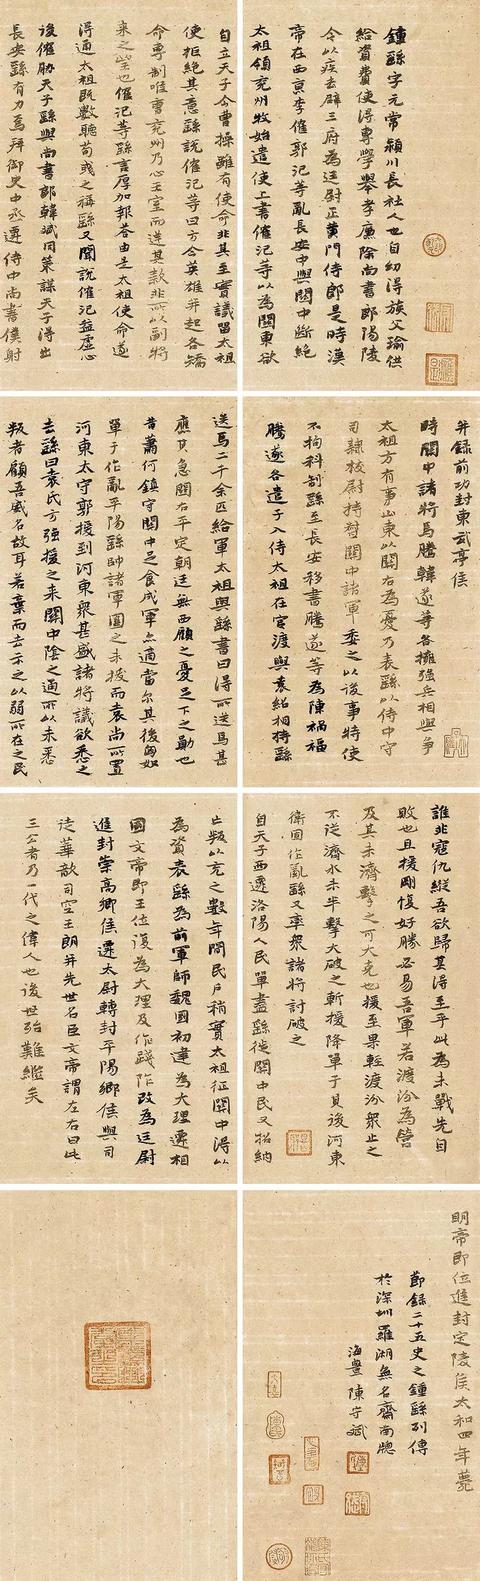 鍾繇字元常潁川長社人也自幼得族父瑜供
給資費使得專學舉孝廉除尚書郎陽陵
令以疾去辟三府為廷尉正黃門侍郎是時漢
帝在西京李傕郭汜等亂長安中與關中斷絕
太祖領兗州牧始遣使上書傕汜等以為關東欲
自立天子今曹操雖有使命非其至實議留太祖
使拒絕其意繇說傕汜等曰方今英雄并起各矯
命專制唯曹兗州乃心王室而逆其款非所以副將
來之望也傕汜等繇言厚加報答由是太祖使命遂
得通太祖既數聽荀彧之稱繇又聞說傕汜益虛心
後傕脅天子繇與尚書郎韓斌同策謀天子得出
長安繇有力焉拜御史中丞遷侍中尚書僕射
并錄前功封東武亭侯
時關中諸將馬騰韓遂等各擁強兵相與爭
太祖方有事山東以關右為憂乃表繇以侍中守
司隸校尉持督關中諸軍委之以後事特使
不拘科制繇至長安移書騰遂等為陳禍福
騰遂各遣子入侍太祖在官渡與袁紹相持繇
送馬二千余匹給軍太祖與繇書曰得所送馬甚
應其急關右平定朝廷無西顧之憂足下之勳也
昔蕭何鎮守關中足食成軍亦適當爾其後匈奴
單于作亂平陽繇帥諸軍圍之未拔而袁尚所置
河東太守郭援到河東眾甚盛諸將議欲悉之
去繇曰袁氏方強援之來關中陰之通所以未悉
叛者顧吾威名故耳若棄而去示之以弱所在之民
誰非寇仇縱吾欲歸其得至乎此為未戰先自
敗也且援剛愎好勝必易吾軍若渡汾為營
及其未濟擊之可大克也援至果輕渡汾眾止之
不從濟水未半擊大破之斬援降單于其後河東
衛固作亂繇又率眾諸將討破之
自天子西遷洛陽人民單盡繇徙關中民又招納
亡叛以充之數年間民戶稍實太祖征關中得以
為資表繇為前軍師魏國初建為大理遷相
國文帝即王位復為大理及作踐阼改為廷尉
進封崇高鄉侯遷太尉轉封平陽鄉侯與司
徒華歆司空王朗并先世名臣文帝謂左右曰此
三公者乃一代之偉人也後世殆難繼矣
明帝即位進封定陵侯太和四年薨
節錄二十五史之鍾繇列傳
於深圳羅湖無名齋南牕
海豐陳守斌